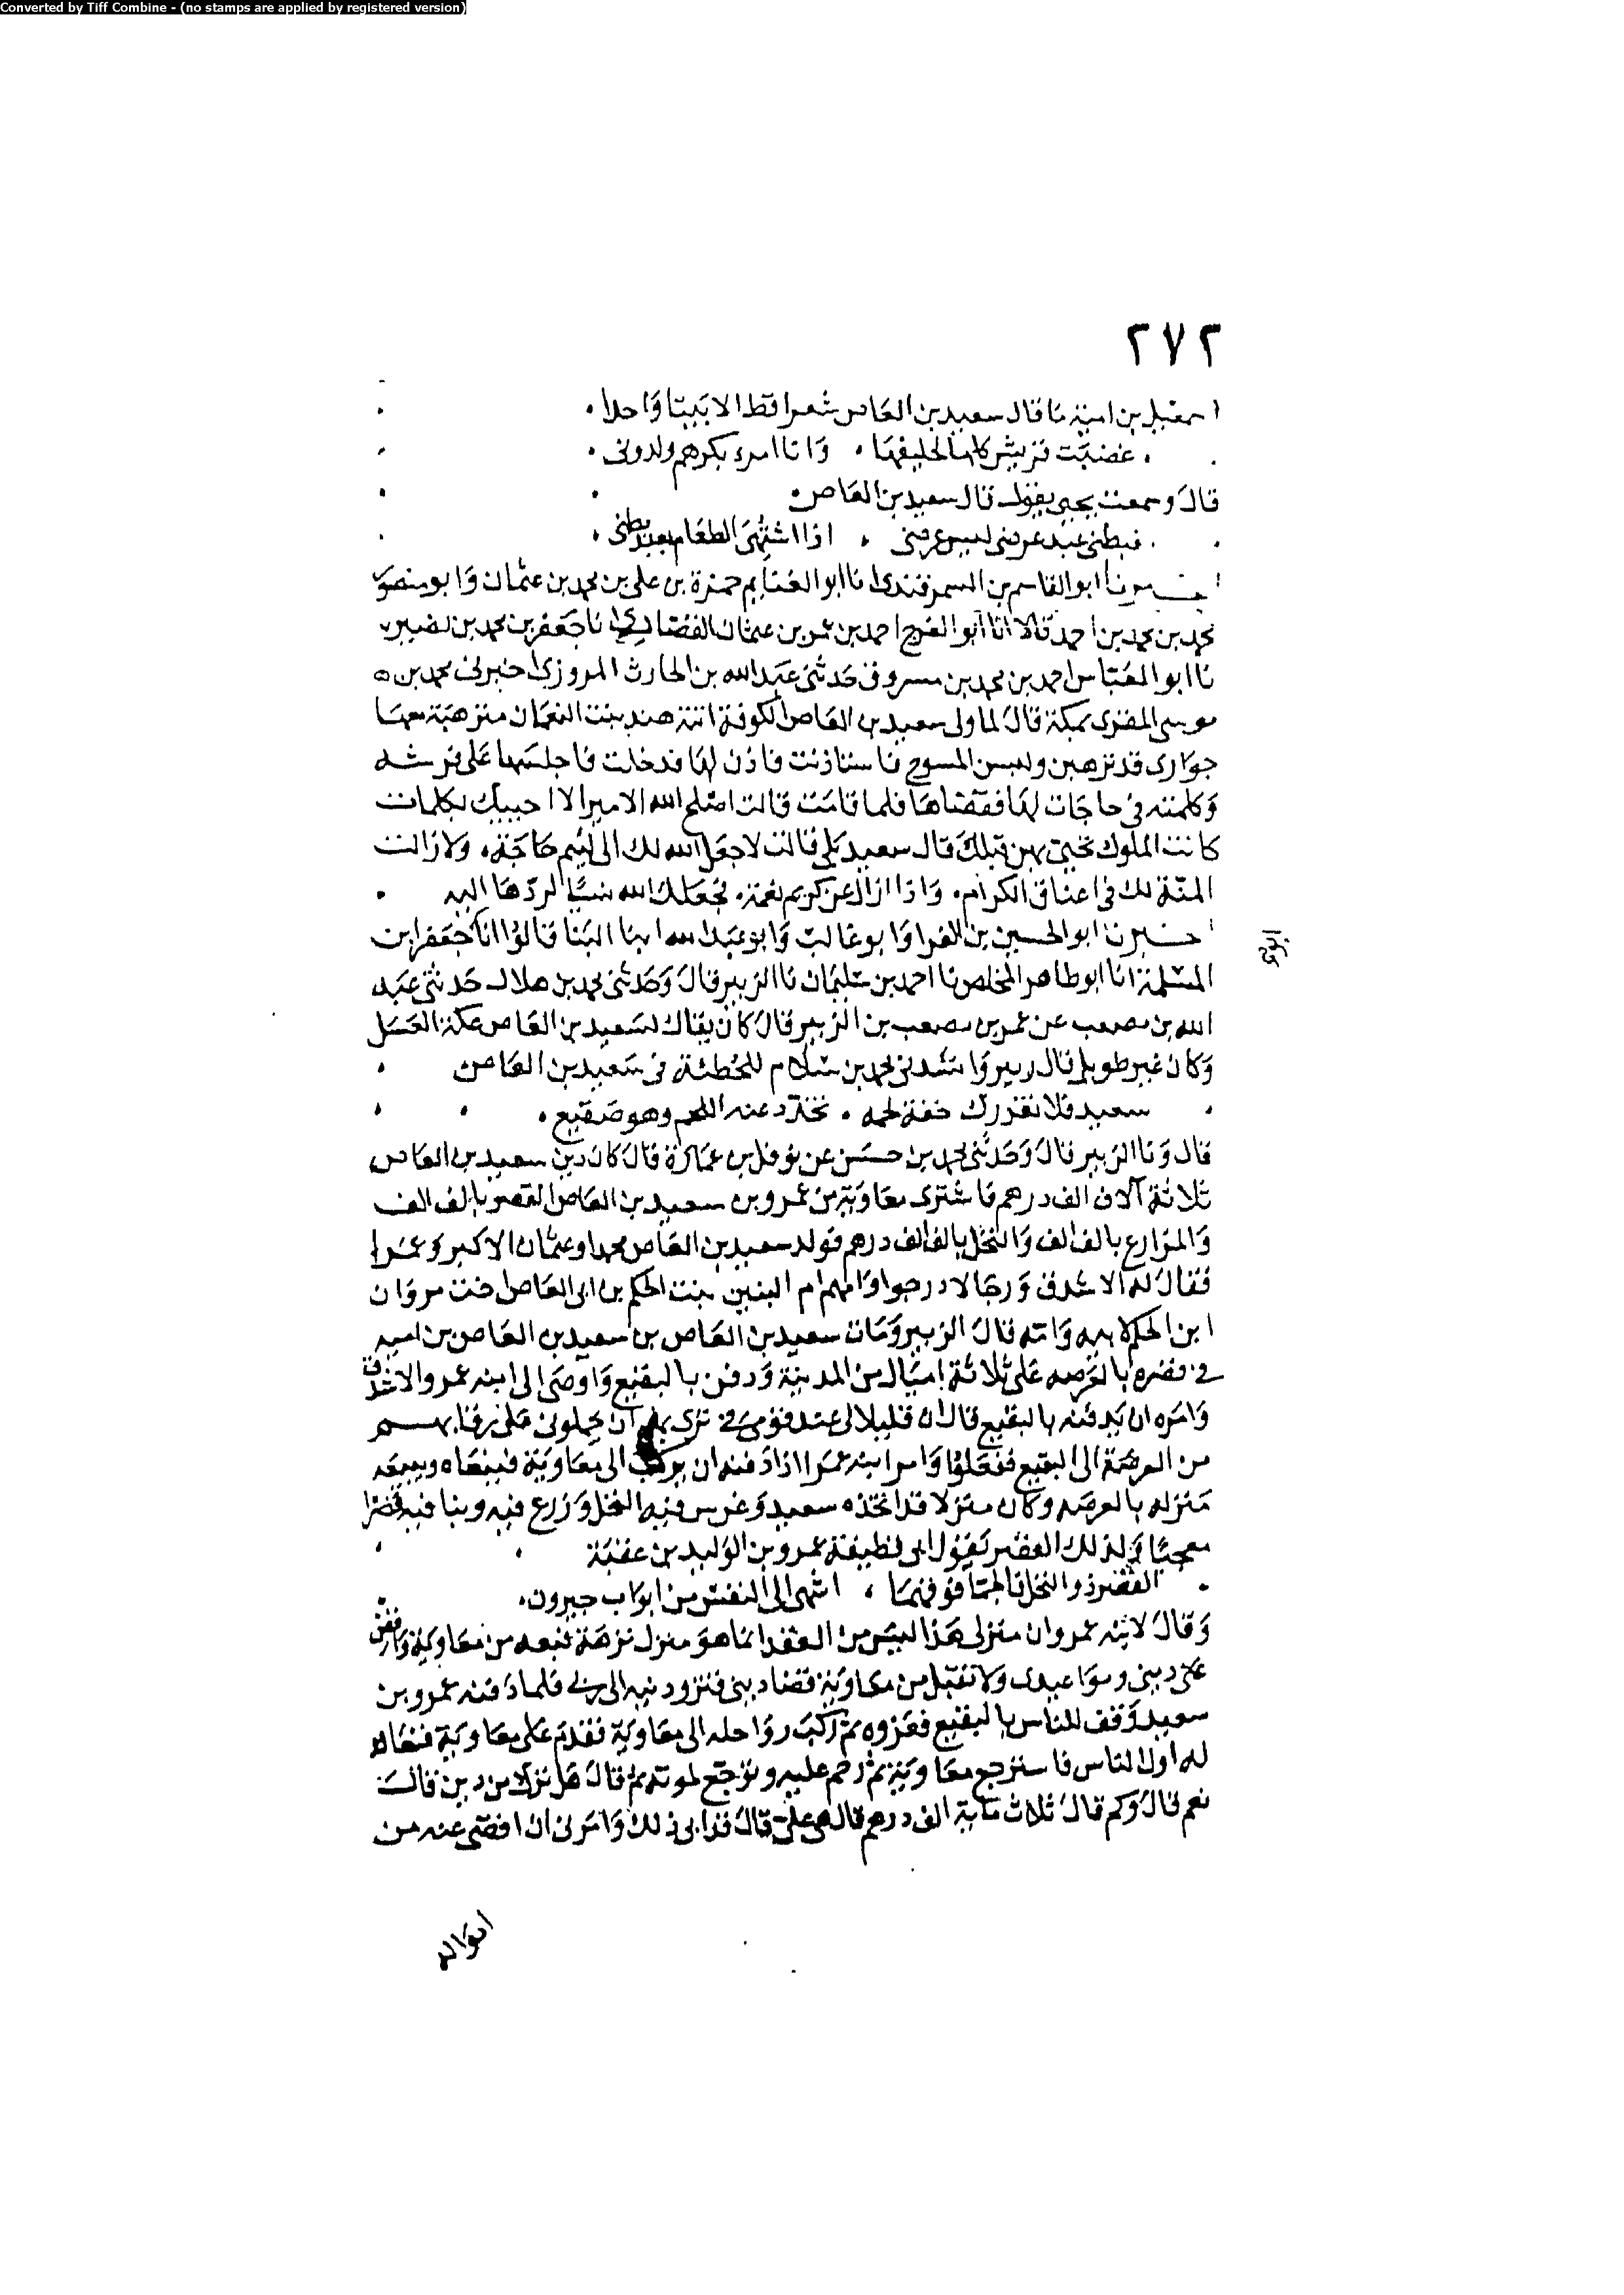 Converted by Tiff Combine - (no stamps are applied by registered version)
٢٧٢
اسمعيل بن امية ما قال سعيد بن العاص شعرا قط الا بيتا واحدا
غضبت قريش كلها لحليفها وانا امرء بكرهم ولدوني
قال وسمعت يحيى يقول قال سعيد بن العاص
فبطني عبد عرضي ليس عرضي اذا اشتهي الطعام بعبد بطني
اخبرنا ابو القاسم بن السمرقندي انا ابو الغنايم حمزة بن علي بن محمد بن عثمان وابو منصور
محمد بن محمد بن احمد قالا انا ابو الفرج احمد بن عمر بن عثمان الغضاري نا جعفر بن محمد بن نصير
نا ابو العباس احمد بن محمد بن مسروق حدثني عبد الله بن الحارث المروزي اخبرني محمد بن
موسى المقري بمكة قال لما ولي سعيد بن العاص الكوفة اتته هند بنت النعمان مترهبة معها
جواري قد ترهبن ولبسن المسوح فاستاذنت فاذن لها فدخلت فاجلسها على فرشه
وكلمته في حاجات لها فقضاها فلما قامت قالت اصلح الله الامير الا احييك بكلمات
كانت الملوك تحيى بهن قبلك قال سعيد بلى قالت لا جعل الله لك الى لئيم حاجة ولا زالت
المنة لك في اعناق الكرام واذا ازال عن كريم نعمة فجعلك الله سببا لردها اليه
اخبرنا ابو الحسين بن الفرا وابو غالب وابو عبد الله ابنا البنا قالوا انا جعفر ابن
ابو ح
المسلمة انا ابو طاهر المخلص نا احمد بن سليمان نا الزبير قال وحدثني محمد بن هلال حدثني عبد
الله بن مصعب عن عمر بن مصعب بن الزبير قال كان يقال لسعيد بن العاص عكة العسل
وكان غير طويل قال زبير وانشدني محمد بن سلام للحطئة في سعيد بن العاص
سعيد فلا تغررك خفة لحمه تخدد عنه اللحم وهو صقيع
قال ونا الزبير قال وحدثني محمد بن حسن عن نوفل بن عمارة قال كان دين سعيد بن العاص
ثلاثة آلاف الف درهم فاشترى معاوية من عمرو بن سعيد بن العاص القصر بالف الف
والمزارع بالف الف والنخل بالف الف درهم فولد سعيد بن العاص محمدا وعثمان الاكبر وعمرا
فقال له الاشدق ورجالا درجوا وامهم ام البنين بنت الحكم بن ابي العاص اخت مروان
ابن الحكم لابيه وامه قال الزبير ومات سعيد بن العاص بن سعيد بن العاص بن امية
في قصره بالعرصه على ثلاثة اميال من المدينة ودفن بالبقيع واوصى الى ابنه عمرو الاشدق
وامره ان يدفنه بالبقيع قال ان قليلا لي عند قومي في بري بهم ان يحملوني على رقابهم
من العرصة الى البقيع ففعلوا وامر ابنه عمرا اذا دفنه ان يركب الى معاوية فينعاه ويبيعه
منزله بالعرصه وكان منزلا قد اتخذه سعيد وغرس فيه النخل وزرع فيه وبنا فيه قصرا
معجبا ولذلك القصر يقول ابو قطيفة عمرو بن الوليد بن عقبة
القصر ذو النخل فالجما فوقهما اشهى الى النفس من ابواب جيرون
وقال لابنه عمرو ان منزلي هذا ليس من العقد انما هو منزل نزهة فبعه من معاوية واقض
عني ديني ومواعيدي ولا تقبل من معاوية قضا ديني فتزودنيه الى ربي فلما دفنه عمرو بن
سعيد وقف للناس بالبقيع فعزوه ثم ركب رواحله الى معاوية فقدم على معاوية فنعاه
له اول الناس فاسترجع معاوية ثم ترحم عليه وتوجع لموته ثم قال هل ترك من دين قال
نعم قال وكم قال ثلاث ماية الف درهم قال هي علي قال قد ابى ذلك وامرني ان اقضي عنه من
امواله